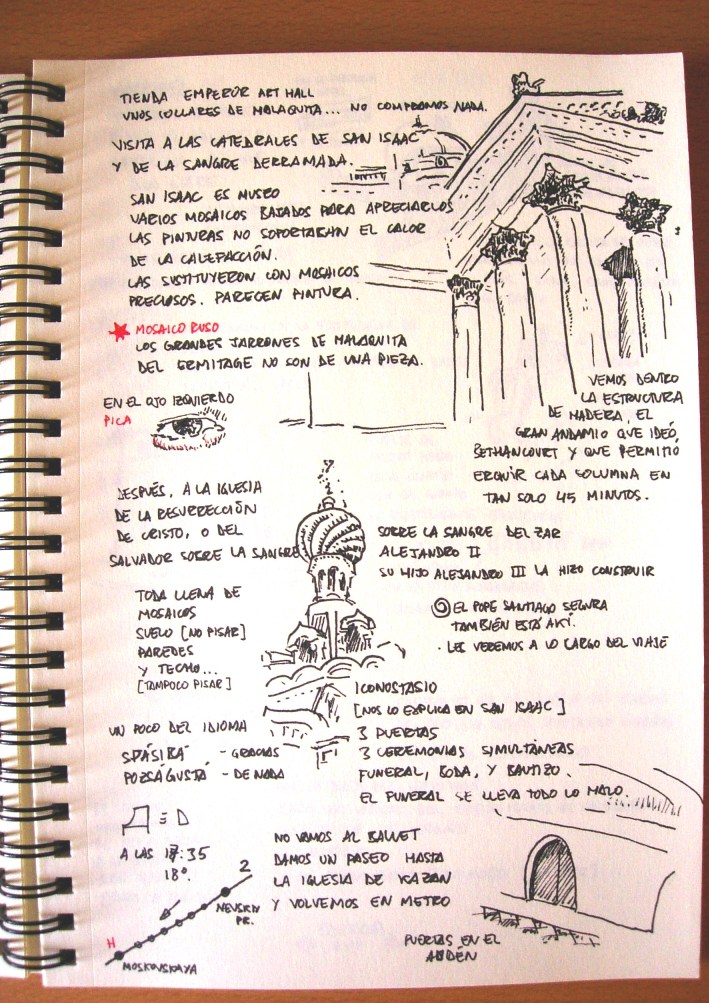 TIENDA EMPEROR ART HALL
UNOS COLLARES DE MALAQUITA... NO COMPRAMOS NADA.
VISITA A LAS CATEDRALES DE SAN ISAAC
Y DE LA SANGRE DERRAMADA.
SAN ISAAC ES MUSEO
VARIOS MOSAICOS BAJADOS PARA APRECIARLOS
LAS PINTURAS NO SOPORTABAN EL CALOR
DE LA CALEFACCIÓN.
LAS SUSTITUYERON CON MOSAICOS
PRECIOSOS. PARECEN PINTURA.
MOSAICO RUSO
LOS GRANDES JARRONES DE MALAQUITA
DEL ERMITAGE NO SON DE UNA PIEZA.
EN EL OJO IZQUIERDO
PICA
VEMOS DENTRO
LA ESTRUCTURA
DE MADERA, EL
GRAN ANDAMIO QUE IDEÓ
BETHANCOURT Y QUE PERMITIÓ
ERGUIR CADA COLUMNA EN
TAN SOLO 45 MINUTOS.
DESPUÉS, A LA IGLESIA
DE LA RESURRECCIÓN
DE CRISTO, O DEL
SALVADOR SOBRE LA SANGRE
SOBRE LA SANGRE DEL ZAR
ALEJANDRO II
SU HIJO ALEJANDRO III LA HIZO CONSTRUIR
EL POPE SANTIAGO SEGURA
TAMBIÉN ESTÁ AHÍ.
· LES VEREMOS A LO LARGO DEL VIAJE
TODA LLENA DE
MOSAICOS
SUELO [NO PISAR]
PAREDES
Y TECHO...
[TAMPOCO PISAR]
ICONOSTASIO
[NOS LO EXPLICA EN SAN ISAAC]
3 PUERTAS
3 CEREMONIAS SIMULTÁNEAS
FUNERAL, BODA, Y BAUTIZO.
EL FUNERAL SE LLEVA TODO LO MALO.
UN POCO DEL IDIOMA
SPÁSIBA - GRACIAS
POZSÁGUSTA - DE NADA
Д = D
A LAS 17:35
18º
NO VAMOS AL BALLET
DAMOS UN PASEO HASTA
LA IGLESIA DE KAZAN
Y VOLVEMOS EN METRO
2
NEVSKIY
PR.
H
MOSKOVSKAYA
PUERTAS EN EL
ANDÉN